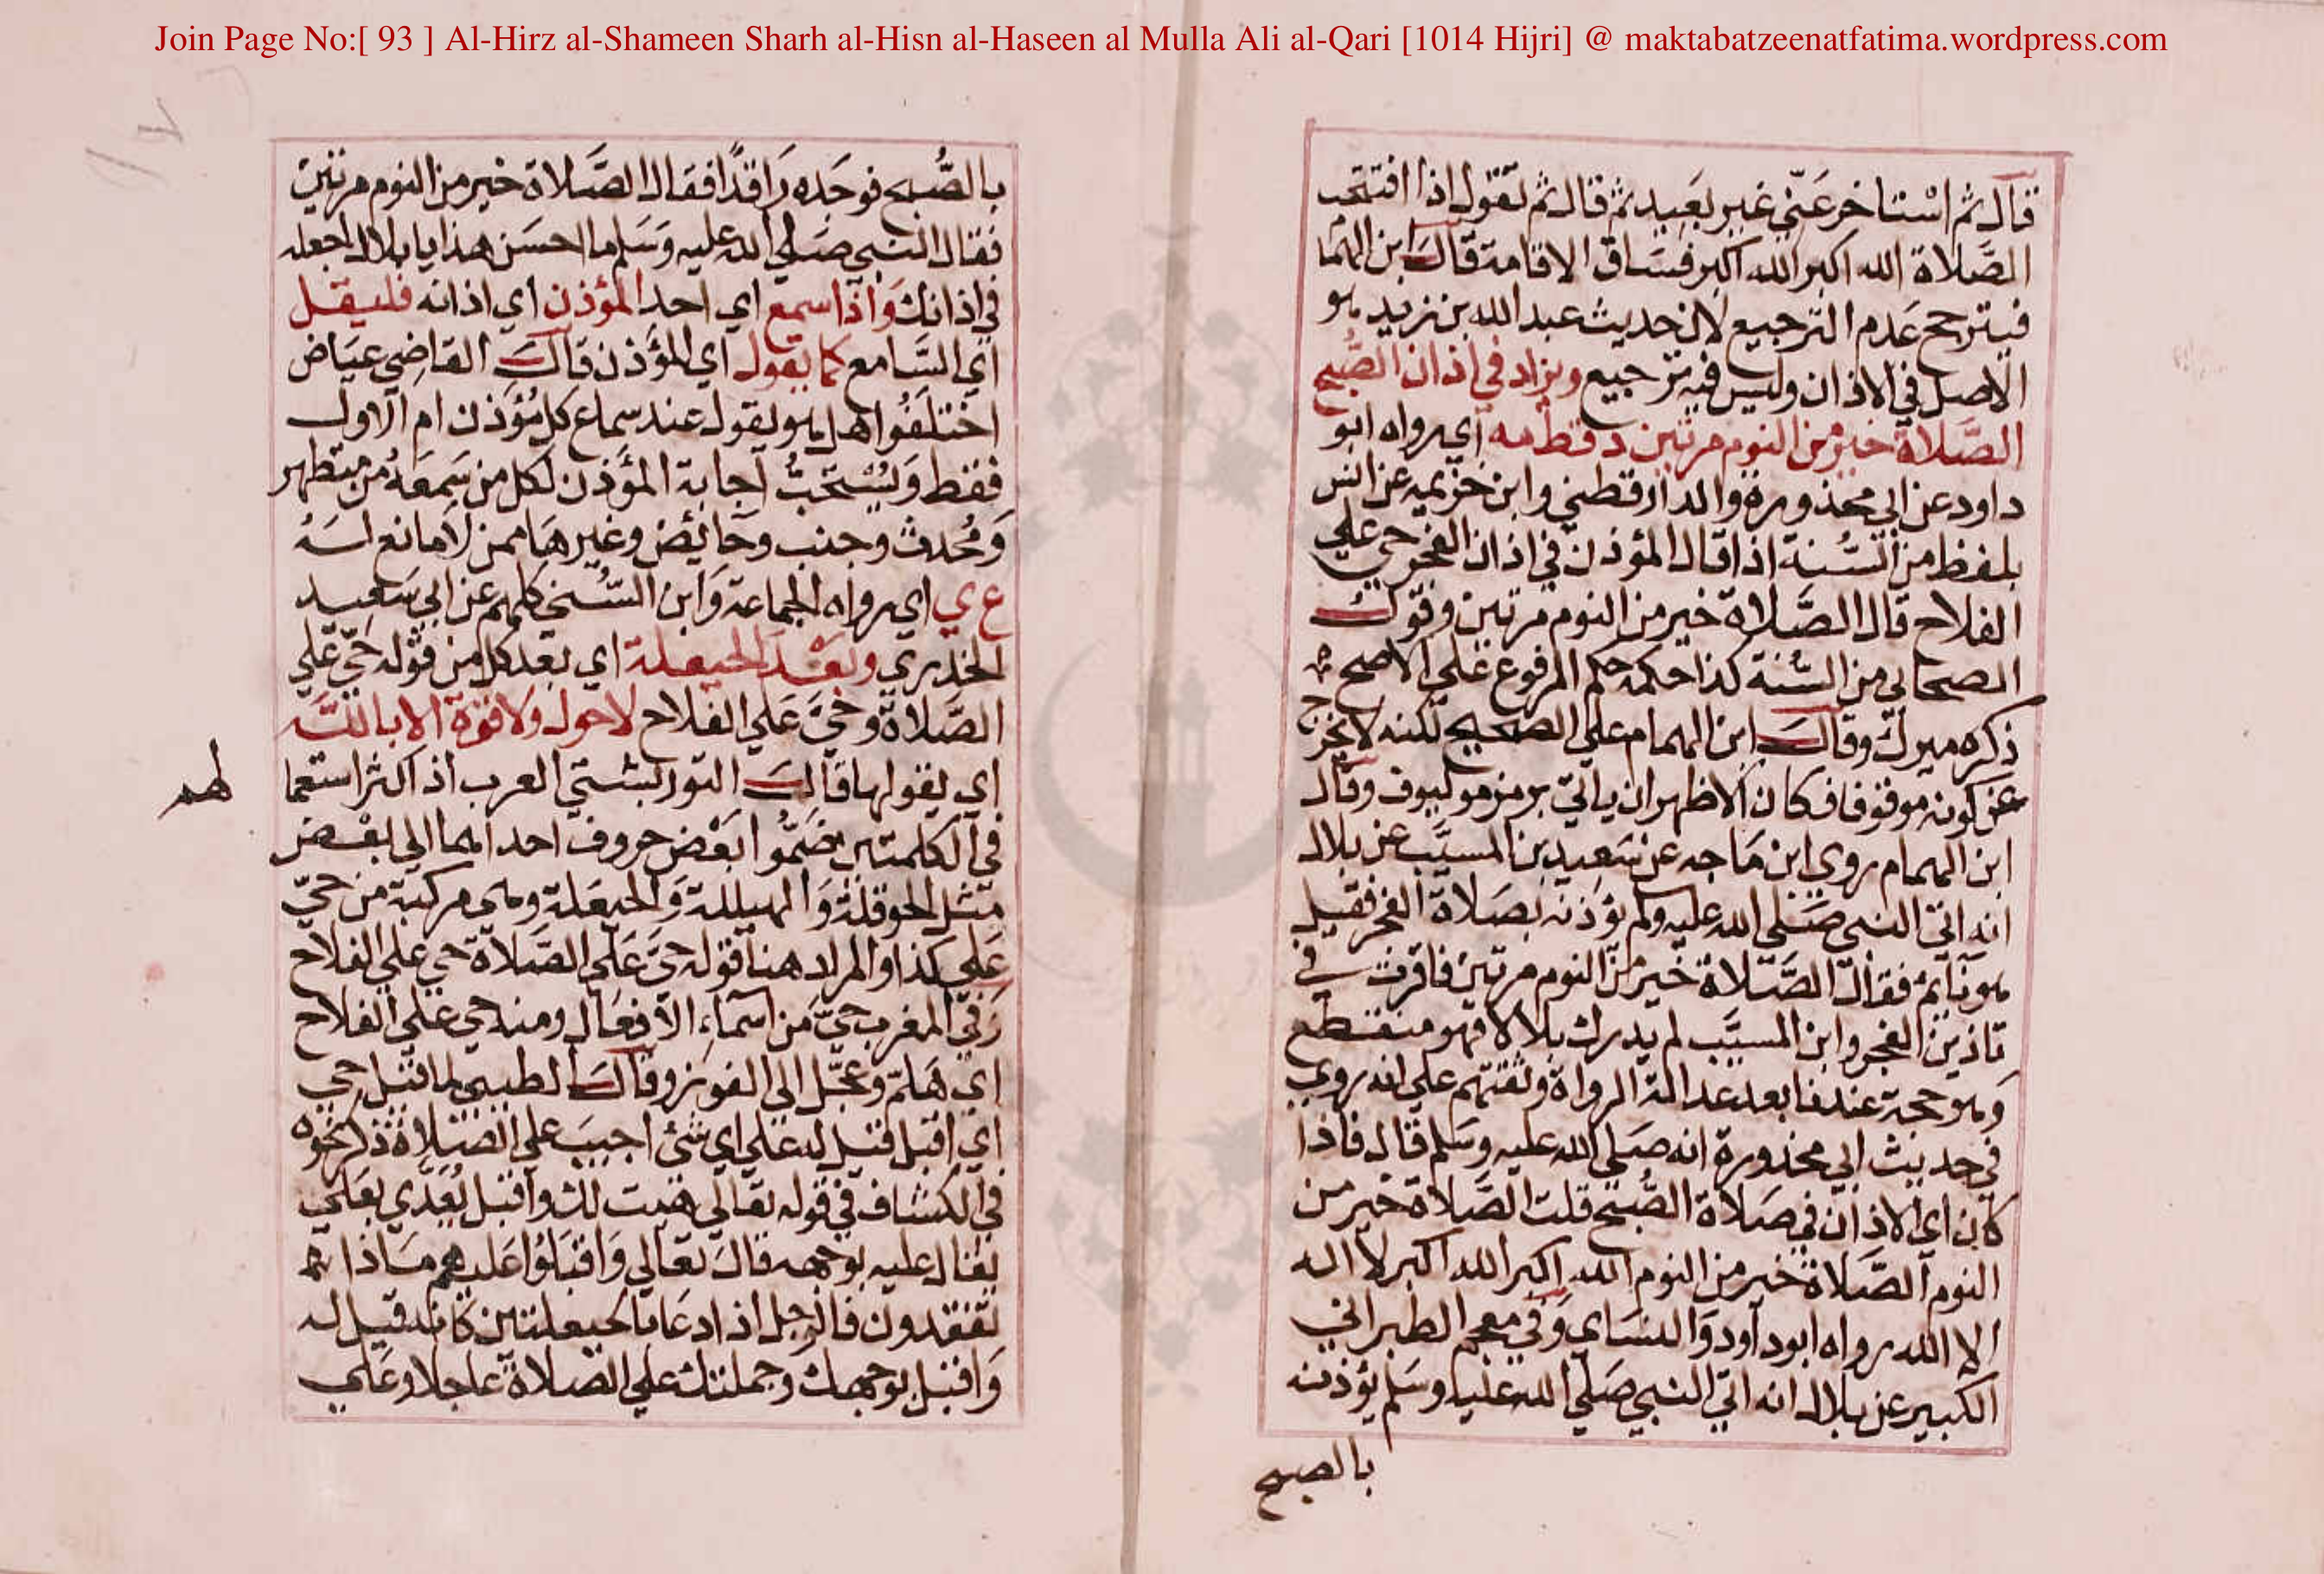 Join Page No:[ 93 ] Al-Hirz al-Shameen Sharh al-Hisn al-Haseen al Mulla Ali al-Qari [1014 Hijri] @ maktabatzeenatfatima.wordpress.com
قال ثم استاخر عني غير بعيد ثم قال ثم تقول اذا افتتحت
الصلاة الله اكبر الله اكبر فساق الاقامة قال ابن الهما
فيترجح عدم الترجيع لان حديث عبد الله بن زيد هو
الاصل في الاذان وليس فيه ترجيع ويزاد في اذان الصبح
الصلاة خير من النوم مرتين د قط مه اي رواه ابو
داود عن ابي محذورة والدارقطني وابن خزيمه عن انس
بلفظ من السنة اذا قال المؤذن في اذان الفجر حي علي
الفلاح قال الصلاة خير من النوم مرتين وقول
الصحابي من السنة كذا حكمه حكم المرفوع علي الاصح
ذكره ميرك وقال ابن الهمام علي الصحيح لكنه لا يخرج
عن كونه موقوفا فكان الاظهر ان ياتي برمز مو ليوف وقال
ابن الهمام روي ابن ماجه عن سعيد بن المسيب عن بلال
انه اتي النبي صلي الله عليه ولم يؤذنه بصلاة الفجر فقيل
هو نايم فقال الصلاة خير من النوم مرتين فاقرت في
تاذين الفجر وابن المسيب لم يدرك بلالا فهو منقطع
وهو حجة عندنا بعد عدالة الرواة وثقتهم علي انه روي
في حديث ابي محذورة انه صلي الله عليه وسلم قال فاذا
كان اي الاذان في صلاة الصبح قلت الصلاة خير من
النوم الصلاة خير من النوم الله اكبر الله اكبر لا اله
الا الله رواه ابو داود والنساي وفي معجم الطبراني
الكبير عن بلال انه اتي النبي صلي الله عليه وسلم يؤذنه
بالصبح
بالصبح فوجده راقدا فقال الصلاة خير من النوم مرتين
فقال النبي صلي الله عليه وسلم ما احسن هذا يا بلال اجعله
في اذانك واذا سمع اي احد المؤذن اي اذانه فليقل
اي السامع كما يقول اي المؤذن قال القاضي عياض
اختلفوا هل هو يقول عند سماع كل مؤذن ام الاول
فقط ويستحب اجابة المؤذن لكل من سمعه من متطهر
ومحدث وجنب وحايض وغيرهما ممن لا مانع له
ع ي اي رواه الجماعة وابن السني كلهم عن ابي سعيد
الخدري وبعد الحيعلة اي بعد كل من قوله حي علي
الصلاة وحي علي الفلاح لا حول ولا قوة الا بالله
اي يقولها قال التوربشتي العرب اذ اكثر استعما
لهم
في الكلمتين ضموا بعض حروف احداهما الي بعض
مثل الحوقلة والهيللة والحيعلة وهي مركبة من حي
علي كذا والمراد هنا قوله حي علي الصلاة حي علي الفلاح
وفي المغرب حي من اسماء الافعال ومنه حي علي الفلاح
اي هلم وعجل الي الفوز وقال الطيبي لما قيل حي
اي اقبل قيل له علي اي شئ اجيب علي الصلاة ذكر نحوه
في الكشاف في قوله تعالي هيت لك واقبل يعدي بعلي
يقال عليه بوجهه قال تعالي واقبلوا عليهم ماذا
تفقدون فالرجل اذا دعا بالحيعلتين كانه قيل له
واقبل بوجهك وجملتك علي الصلاة عاجلا وعلي